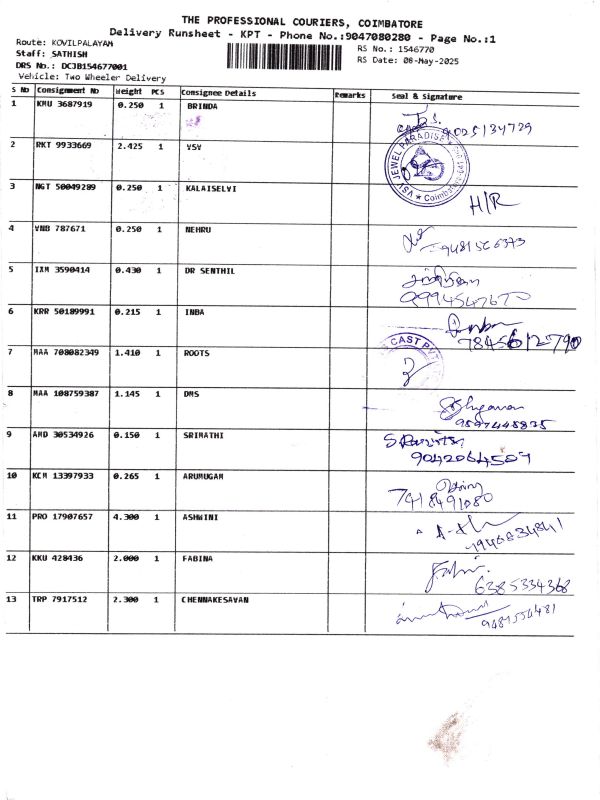 THE PROFESSIONAL COURIERS, COIMBATORE
Delivery Runsheet - KPT - Phone No.:9047080280 - Page No.:1
Route: KOVILPALAYAM
Staff: SATHISH
DRS No.: DCJB154677001
Vehicle: Two Wheeler Delivery
RS No.: 1546770
RS Date: 08-May-2025
S No Consignment No Weight PCS Consignee Details Remarks Seal & Signature
1 KMU 3687919 0.250 1 BRINDA
9025134729
2 RKT 9933669 2.425 1 VSV
VSV JEWEL PARADISE
3 NGT 50049289 0.250 1 KALAISELVI H/R
4 VNB 787671 0.250 1 NEHRU
5 IXM 3590414 0.430 1 DR SENTHIL
6 KRR 50189991 0.215 1 INBA
7845612790
7 MAA 708082349 1.410 1 ROOTS
CAST PVT
8 MAA 108759387 1.145 1 DMS
9597448835
9 AMD 30534926 0.150 1 SRIMATHI
9042064507
10 KCM 13397933 0.265 1 ARUMUGAM
7418491080
11 PRO 17907657 4.300 1 ASHWINI
12 KKU 428436 2.000 1 FABINA
6385334368
13 TRP 7917512 2.300 1 CHENNAKESAVAN